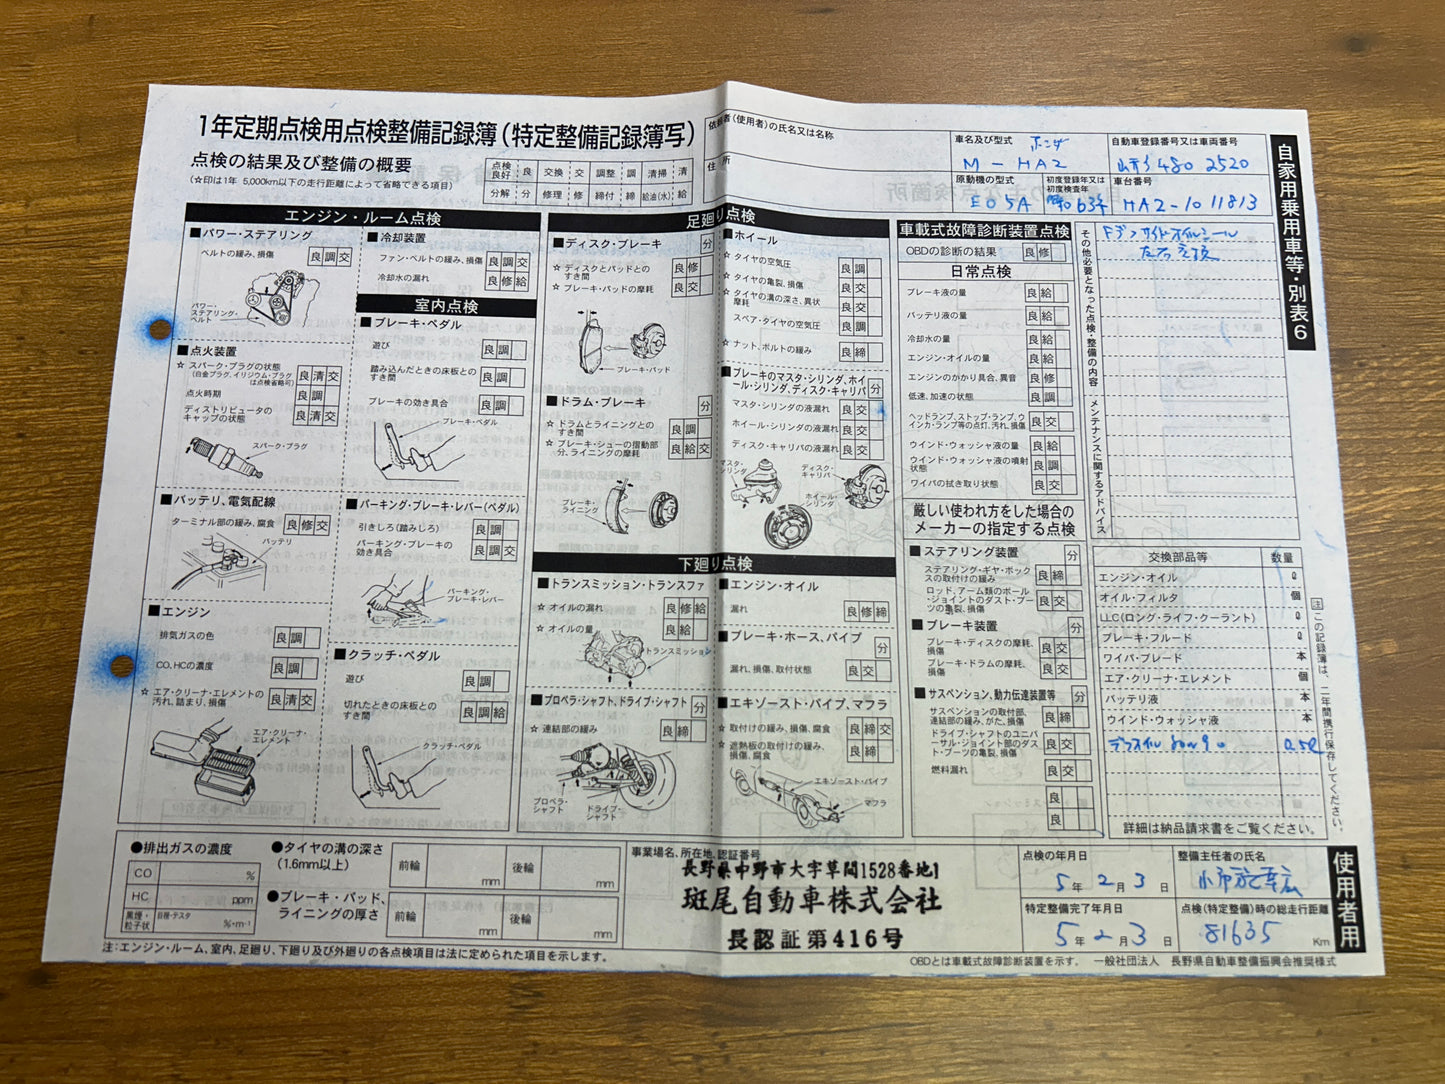 1年定期点検用点検整備記録簿(特定整備記録簿写)
点検の結果及び整備の概要
(☆印は1年 5,000km以下の走行距離によって省略できる項目)
点検良好 良 交換 交 調整 調 清掃 清
分解 分 修理 修 締付 締 給油(水) 給
依頼者(使用者)の氏名又は名称
住所
車名及び型式 ホンダ
M-HA2
自動車登録番号又は車両番号
480 2520
原動機の型式
E05A
初度登録年又は
初度検査年
63年
車台番号
HA2-1011813
自家用乗用車等・別表6
エンジン・ルーム点検
■パワー・ステアリング
ベルトの緩み、損傷 良 調 交
パワー・
ステアリング・
ベルト
■点火装置
☆スパーク・プラグの状態 良 清 交
(白金プラグ、イリジウム・プラグ
は点検省略可)
点火時期 良 調
ディストリビュータの
キャップの状態 良 清 交
スパーク・プラグ
■バッテリ、電気配線
ターミナル部の緩み、腐食 良 修 交
バッテリ
■エンジン
排気ガスの色 良 調
CO、HCの濃度 良 調
☆エア・クリーナ・エレメントの
汚れ、詰まり、損傷 良 清 交
エア・クリーナ・
エレメント
■冷却装置
ファン・ベルトの緩み、損傷 良 調 交
冷却水の漏れ 良 修 給
室内点検
■ブレーキ・ペダル
遊び 良 調
踏み込んだときの床板との
すき間 良 調
ブレーキの効き具合 良 調
ブレーキ・ペダル
■パーキング・ブレーキ・レバー(ペダル)
引きしろ(踏みしろ) 良 調
パーキング・ブレーキの
効き具合 良 調 交
パーキング・
ブレーキ・レバー
■クラッチ・ペダル
遊び 良 調
切れたときの床板との
すき間 良 調 給
クラッチ・ペダル
足廻り点検
■ディスク・ブレーキ 分
☆ディスクとパッドとの
すき間 良 修
☆ブレーキ・パッドの摩耗 良 交
ブレーキ・パッド
■ドラム・ブレーキ 分
☆ドラムとライニングとの
すき間 良 調
☆ブレーキ・シューの摺動部
分、ライニングの摩耗 良 給 交
ブレーキ・
ライニング
■ホイール
☆タイヤの空気圧 良 調
☆タイヤの亀裂、損傷 良 交
☆タイヤの溝の深さ、異状
摩耗 良 交
スペア・タイヤの空気圧 良 調
☆ナット、ボルトの緩み 良 締
■ブレーキのマスタ・シリンダ、ホイ
ール・シリンダ、ディスク・キャリパ 分
マスタ・シリンダの液漏れ 良 交
ホイール・シリンダの液漏れ 良 交
ディスク・キャリパの液漏れ 良 交
マスタ・
シリンダ
ディスク・
キャリパ
ホイール・
シリンダ
下廻り点検
■トランスミッション・トランスファ
☆オイルの漏れ 良 修 給
☆オイルの量 良 給
トランスミッション
■プロペラ・シャフト、ドライブ・シャフト 分
☆連結部の緩み 良 締
プロペラ・
シャフト
ドライブ・
シャフト
■エンジン・オイル
漏れ 良 修 締
■ブレーキ・ホース、パイプ 分
漏れ、損傷、取付状態 良 交
■エキゾースト・パイプ、マフラ
☆取付けの緩み、損傷、腐食 良 締 交
☆遮熱板の取付けの緩み、
損傷、腐食 良 締
エキゾースト・パイプ
マフラ
車載式故障診断装置点検
OBDの診断の結果 良 修
日常点検
ブレーキ液の量 良 給
バッテリ液の量 良 給
冷却水の量 良 給
エンジン・オイルの量 良 給
エンジンのかかり具合、異音 良 修
低速、加速の状態 良 調
ヘッドランプ、ストップ・ランプ、ウ
インカ・ランプ等の点灯、汚れ、損傷 良 交
ウインド・ウォッシャ液の量 良 給
ウインド・ウォッシャ液の噴射
状態 良 調
ワイパの拭き取り状態 良 交
厳しい使われ方をした場合の
メーカーの指定する点検
■ステアリング装置 分
ステアリング・ギヤ・ボック
スの取付けの緩み 良 締
ロッド、アーム類のボール
・ジョイントのダスト・ブー
ツの亀裂、損傷 良 交
■ブレーキ装置 分
ブレーキ・ディスクの摩耗、
損傷 良 交
ブレーキ・ドラムの摩耗、
損傷 良 交
■サスペンション、動力伝達装置等 分
サスペンションの取付部、
連結部の緩み、がた、損傷 良 締
ドライブ・シャフトのユニバ
ーサル・ジョイント部のダス
ト・ブーツの亀裂、損傷 良 交
燃料漏れ 良 交
良
良
その他必要となった点検・整備の内容 メンテナンスに関するアドバイス
Fデフサイドオイルシール
左右交換
交換部品等 数量
エンジン・オイル ℓ
オイル・フィルタ 個
LLC(ロング・ライフ・クーラント) ℓ
ブレーキ・フルード
ワイパ・ブレード 本
エア・クリーナ・エレメント 個
バッテリ液 本
ウインド・ウォッシャ液 本
デフオイル 80W90 0.5ℓ
詳細は納品請求書をご覧ください。
注 この記録簿は、二年間携行保存してください。
使用者用
●排出ガスの濃度
CO %
HC ppm
黒煙・粒子状 自視・テスタ %・m⁻¹
●タイヤの溝の深さ
(1.6mm以上)
前輪 mm 後輪 mm
●ブレーキ・パッド、
ライニングの厚さ
前輪 mm 後輪 mm
事業場名、所在地、認証番号
長野県中野市大字草間1528番地1
斑尾自動車株式会社
長認証第416号
点検の年月日
5年2月3日
特定整備完了年月日
5年2月3日
整備主任者の氏名
点検(特定整備)時の総走行距離
81635 Km
注:エンジン・ルーム、室内、足廻り、下廻り及び外廻りの各点検項目は法に定められた項目を示します。
OBDとは車載式故障診断装置を示す。 一般社団法人 長野県自動車整備振興会推奨様式